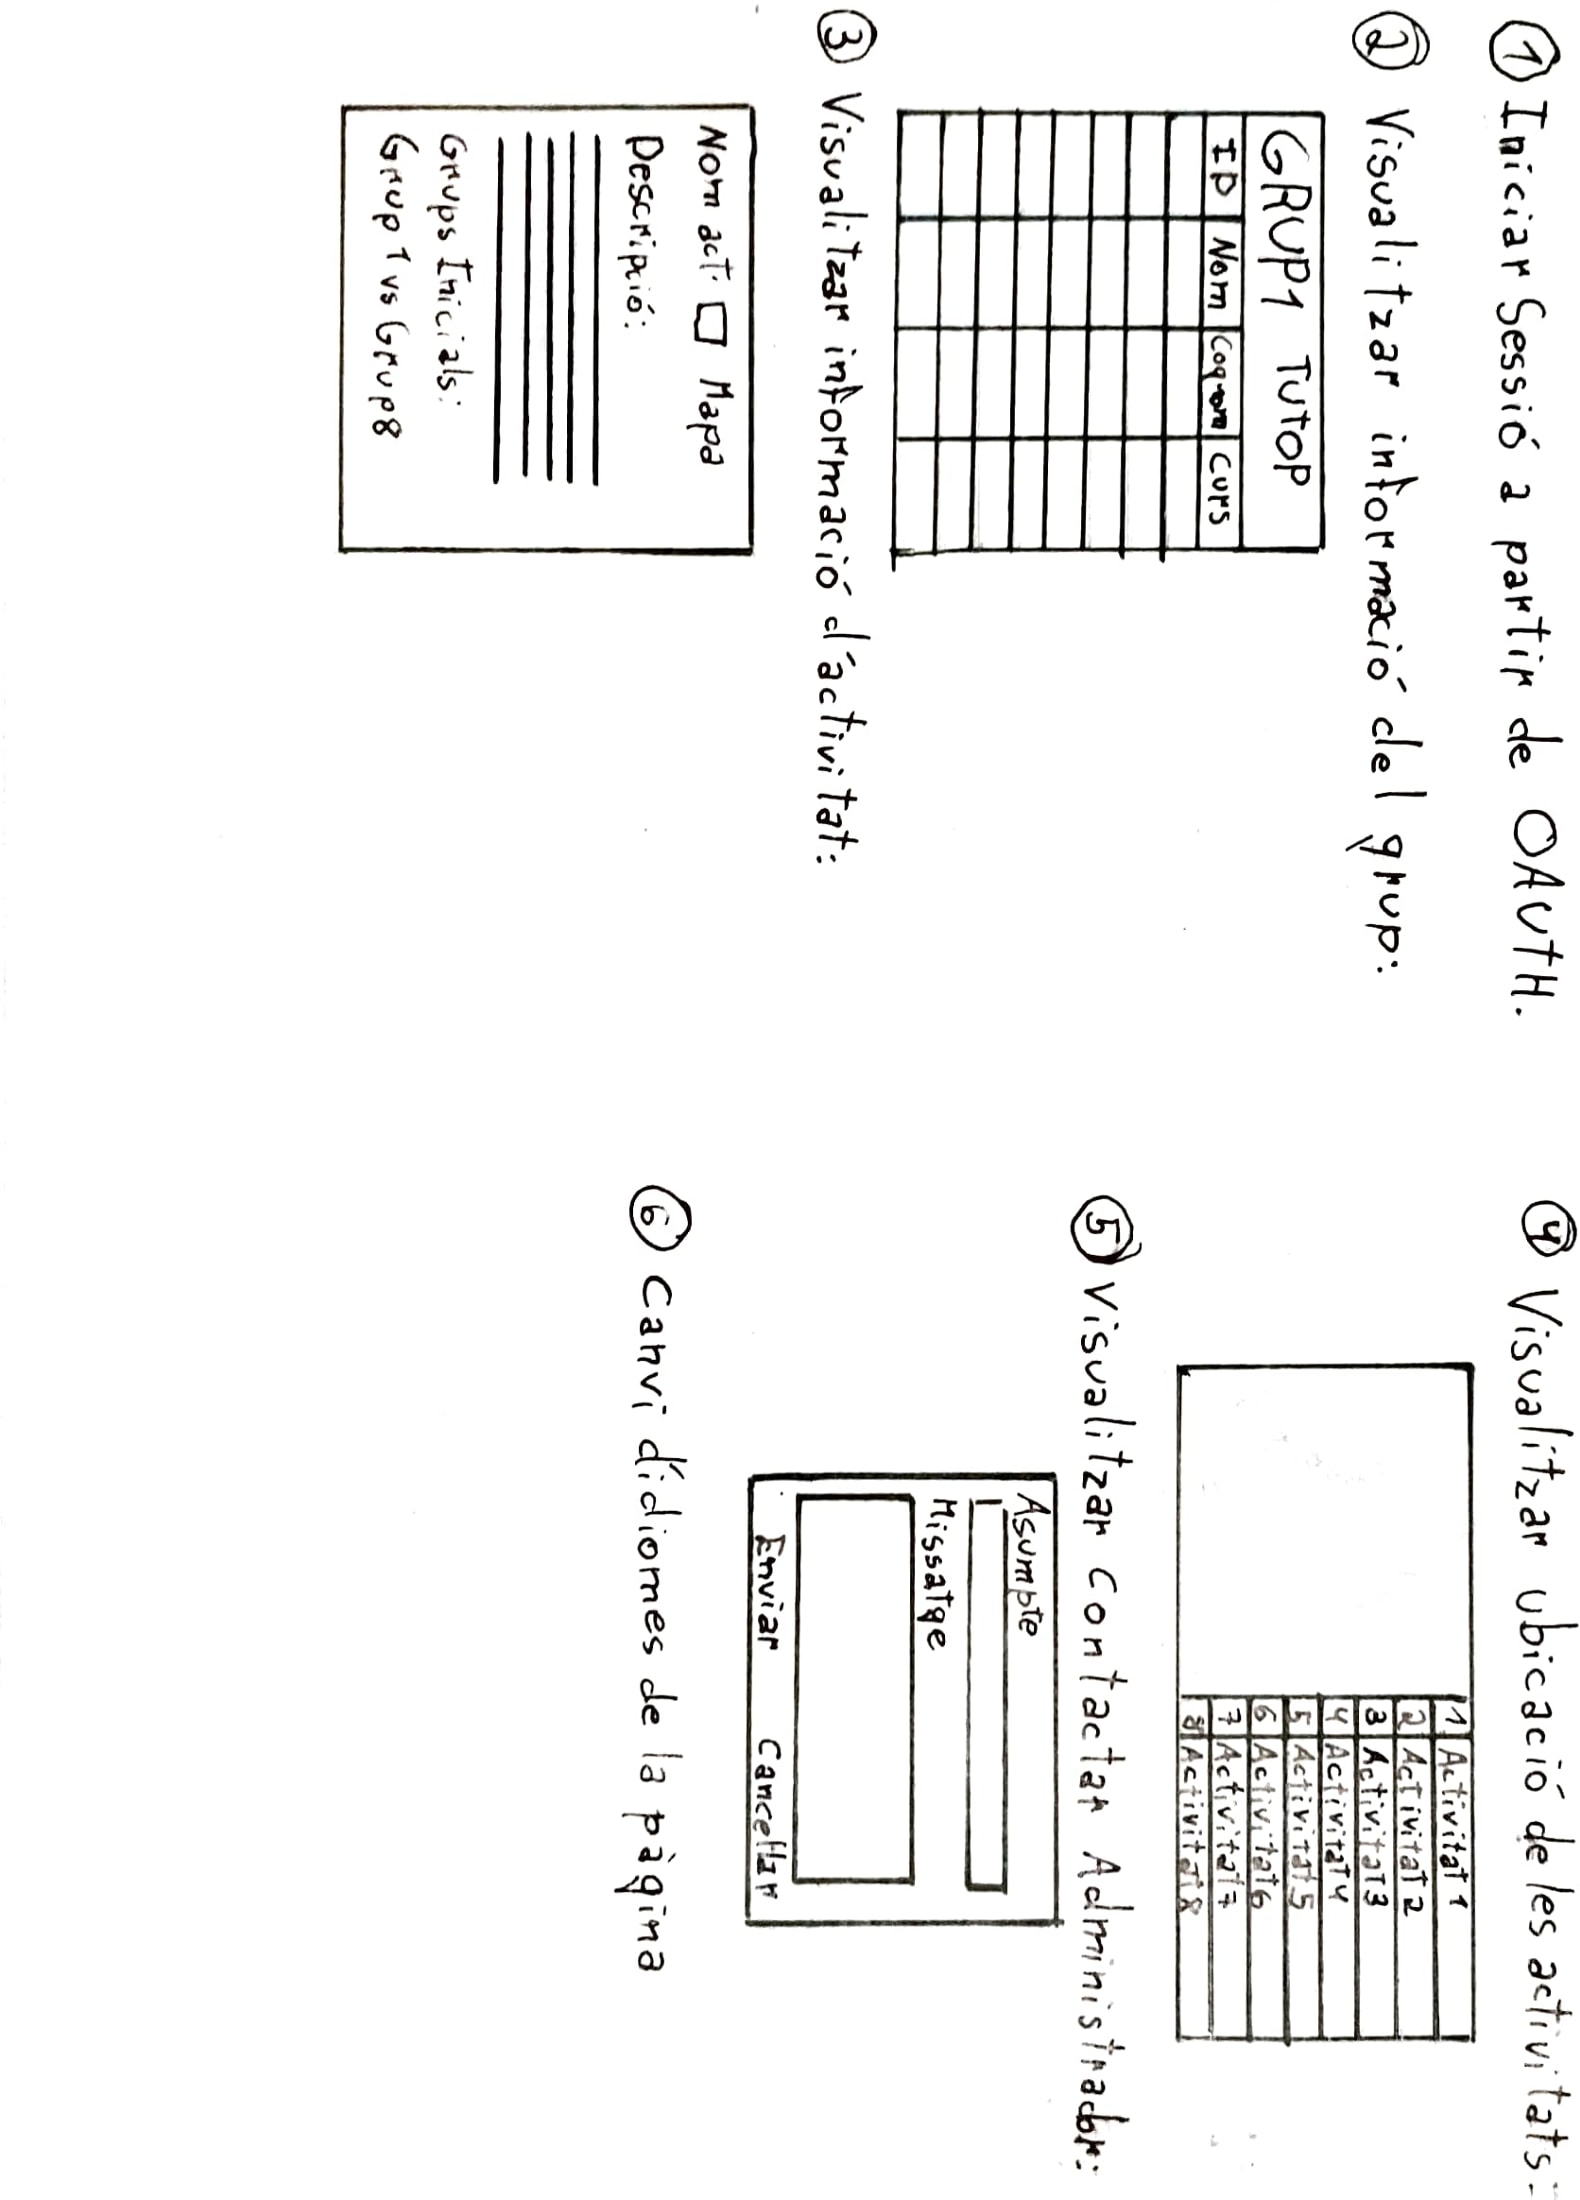 ① Iniciar Sessió a partir de OAUTH.
② Visualitzar informació del grup:
GRUP1 TUTOP
ID Nom Cognom Curs
③ Visualitzar informació d'activitat:
Nom act. Mapa
Descripció:
Grups Inicials:
Grup 1 vs Grup 8
④ Visualitzar ubicació de les activitats:
1 Activitat 1
2 Activitat 2
3 Activitat 3
4 Activitat 4
5 Activitat 5
6 Activitat 6
7 Activitat 7
8 Activitat 8
⑤ Visualitzar Contactar Administrador:
Asumpte
Missatge
Enviar Cancel·lar
⑥ Canvi d'idiomes de la pàgina